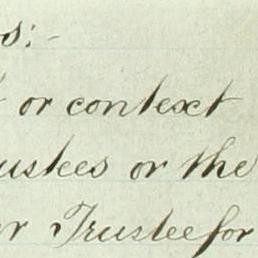 s:-
or context
ustees or the
r Trustee for